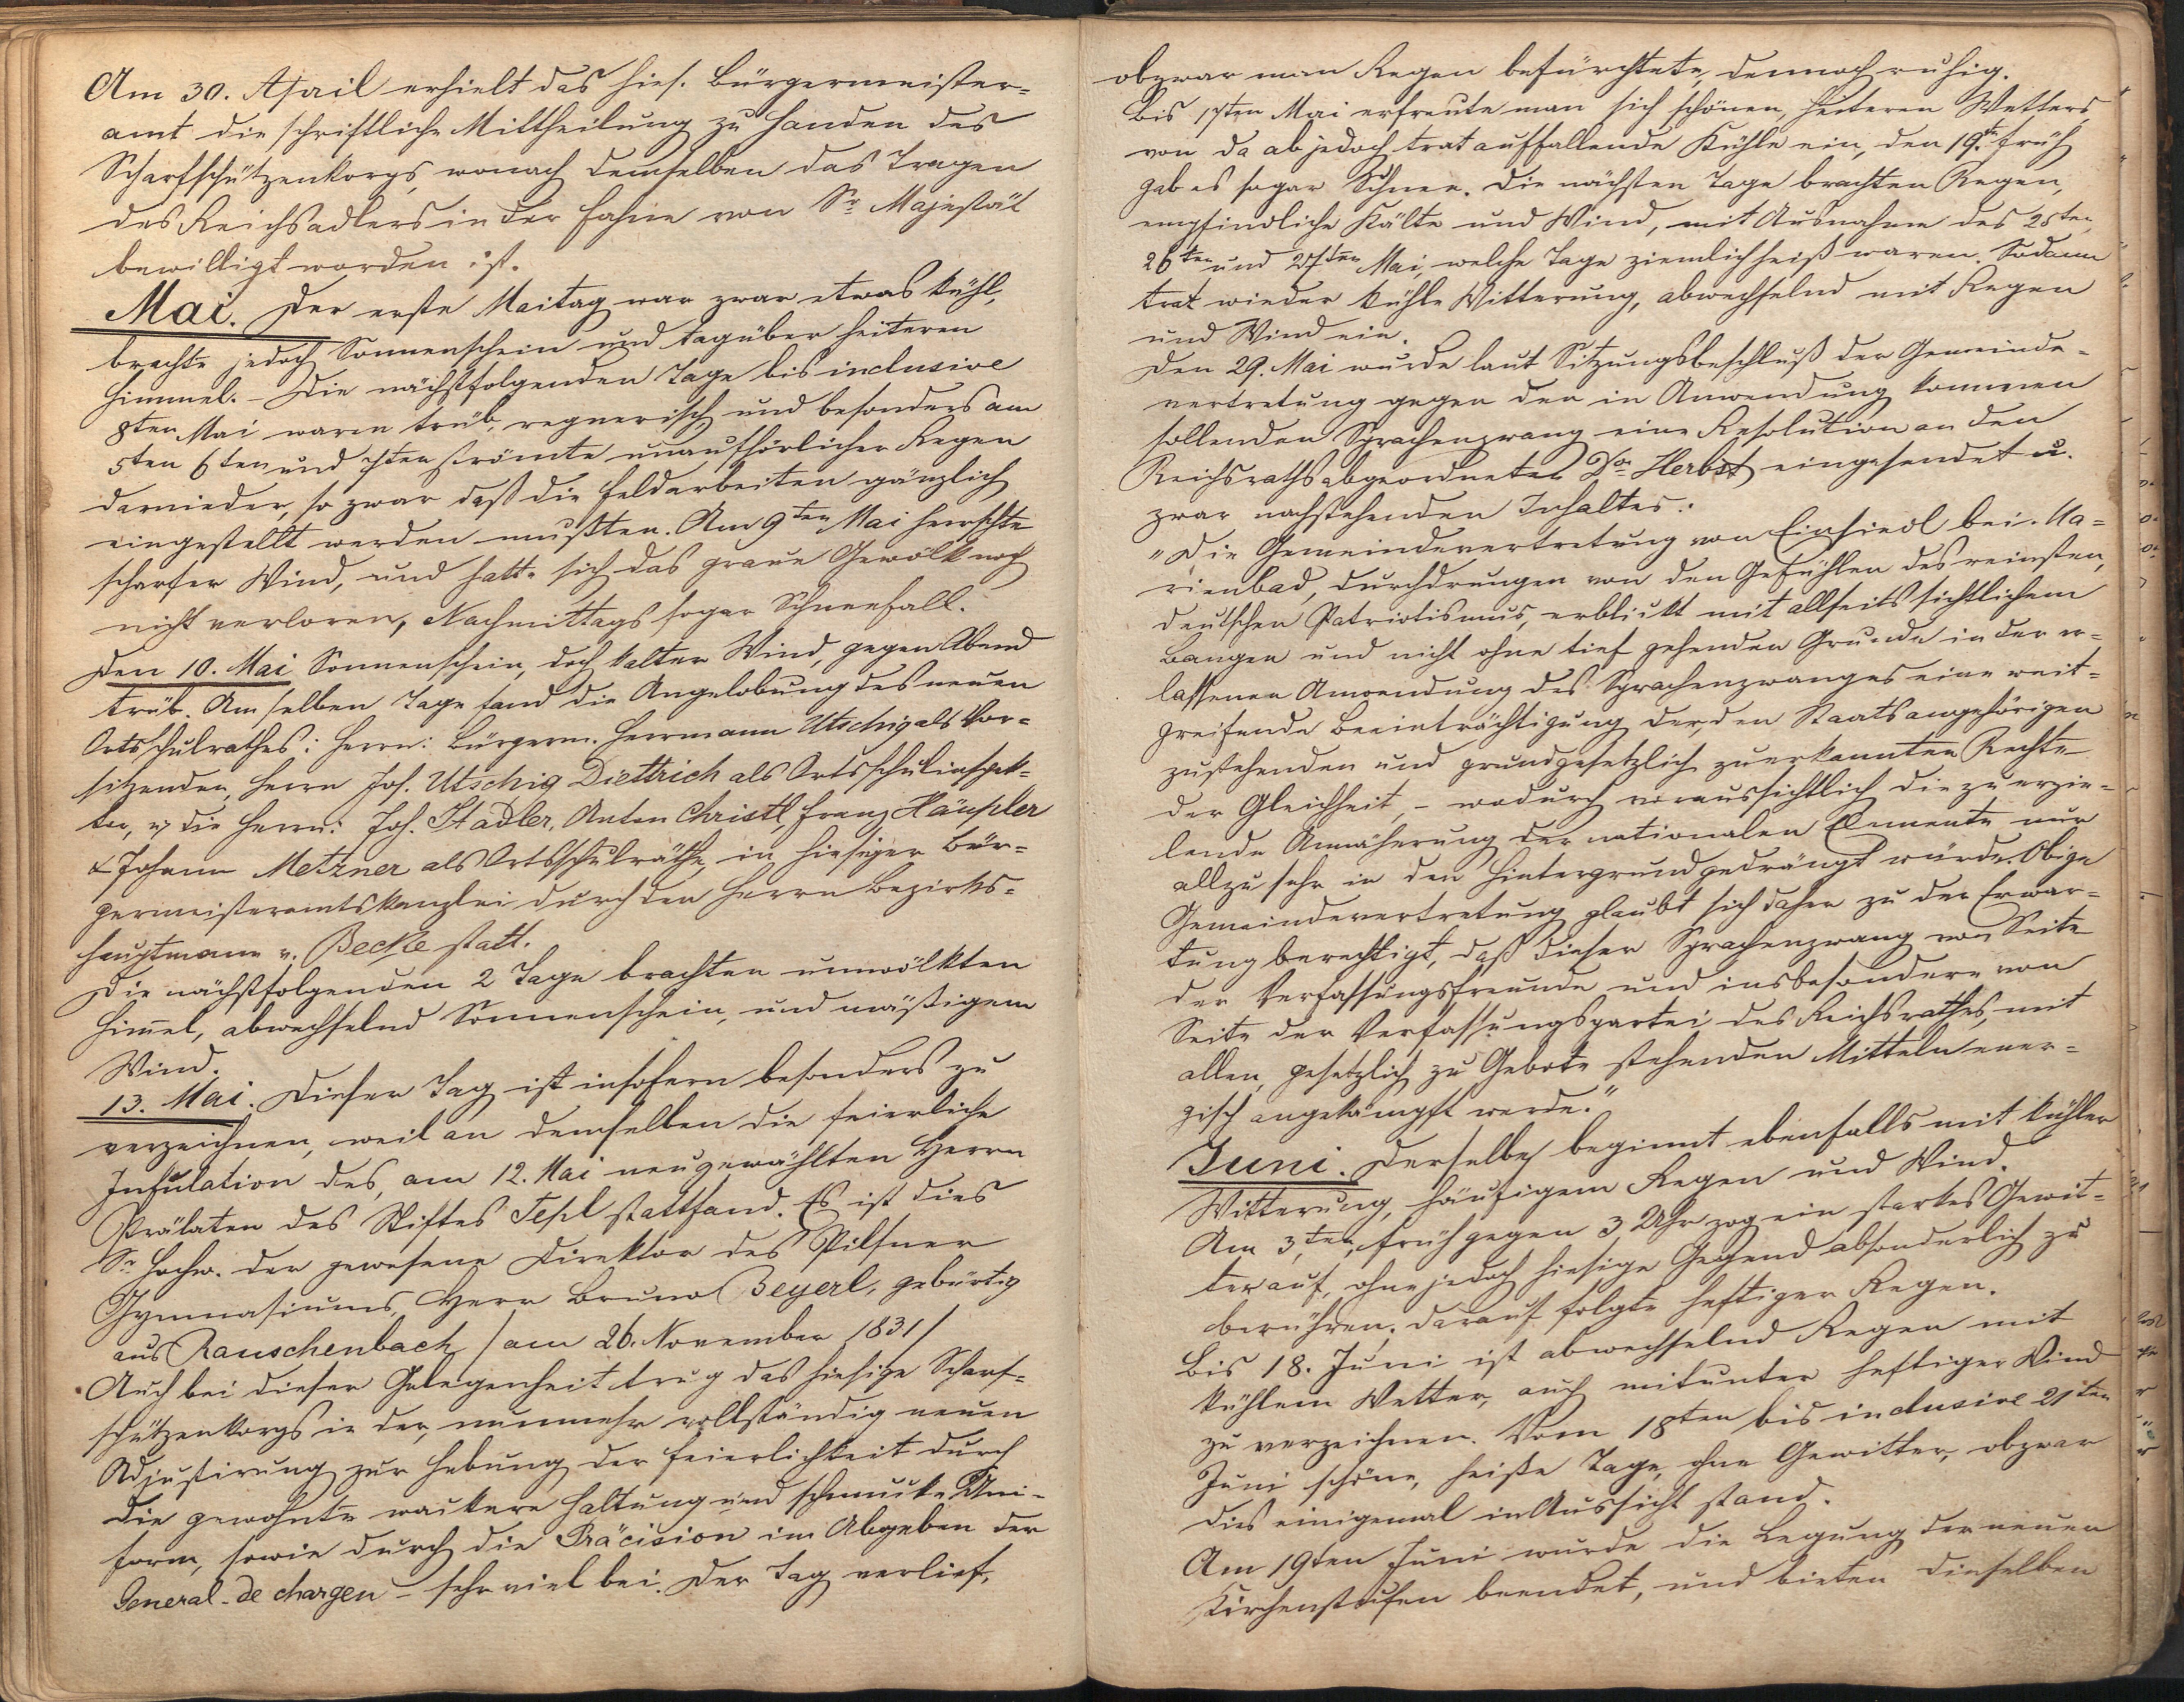 Am 30. April erhielt das hies. Bürgermeister-
amt die schriftliche Mittheilung zu Handen des
Scharfschützenkorps, wonach demselben das Tragen
des Reichsadlers in der Fahne von Sr Majestät
bewilligt worden ist.
Mai. Der erste Maitag war zwar etwas kühl,
brachte jedoch Sonnenschein und tagüber heiteren
Himmel. - Die nächstfolgenden Tage bis inclusive
8ten Mai waren trüb, regnerisch und besonders am
5ten 6ten und 7ten strömte unaufhörlicher Regen
darnieder, so zwar daß die Feldarbeiten gänzlich
eingestellt werden mußten. Am 9ten Mai herrschte
scharfer Wind, und hatte sich das graue Gewölk noch
nicht verloren, Nachmittags sogar Schneefall.
Den 10. Mai Sonnenschein, doch kalter Wind, gegen Abend
trüb. Am selben Tage fand die Angelobung des neuen
Ortsschulrathes: Herrn: Bürgerm. Herrmann Utschig als Vor-
sitzenden, Herrn Jos. Utschig Diettrich als Ortsschulinspek-
tor, u. die Herrn: Joh. Stadler, Anton Christl, Franz Häupler
& Johann Metzner als Ortsschulräthe, in hiesiger Bür-
germeisteramtskanzlei durch den Herrn Bezirks-
hauptmann v. Becke statt.
Die nächstfolgenden 2 Tage brachten umwölkten
Himel, abwechselnd Sonnenschein, und mäßigem
Wind.
13. Mai. Dieser Tag ist insofern besonders zu
verzeichnen, weil an demselben die feierliche
Infulation des, am 12. Mai neugewählten Herrn
Prälaten des Stiftes Tepl stattfand. Es ist dies
Sr Hochw. der gewesene Direktor des Pilsner
Gymnasiums, Herr Bruno Beyerl, gebürtig
aus Rauschenbach /am 26. November 1831/
Auch bei dieser Gelegenheit trug das hiesige Scharf-
schützenkorps in der, nunmehr vollständig neuen
Adjustirung zur Hebung der Feierlichkeit durch
die gewohnte wackere Haltung und schmucke Uni-
form, sowie durch die Präcision im Abgeben der
General-de chargen - sehr viel bei. Der Tag verlief,
obzwar man Regen befürchtete, dennoch ruhig.
Bis 17ten Mai erfreute man sich schönen, heiteren Wetters,
von da ab jedoch trat auffallende Kühle ein, den 19.tn früh
gab es sogar Schnee. Die nächsten Tage brachten Regen,
empfindliche Kälte und Wind, mit Ausnahme des 25ten
26ten und 27ten Mai, welche Tage ziemlich heiß waren. Sodann
trat wieder kühle Witterung, abwechselnd mit Regen
und Wind ein.
Den 29. Mai wurde laut Sitzungsbeschluß der Gemeinde-
vertretung gegen den in Anwendung kommen
sollenden Sprachenzwang eine Resolution an den
Reichsrathsabgeordneten Dor Herbst eingesendet u.
zwar nachstehenden Inhaltes:
"Die Gemeindevertretung von Einsiedl bei Ma-
rienbad, durchdrungen von den Gefühlen des reinsten,
deutschen Patriotismus, erblickt mit allseits sichtlichem
Bangen und nicht ohne tief gehenden Grunde in der er-
lassenen Anwendung des Sprachenzwanges eine weit-
greifende Beeinträchtigung der, den Staatsangehörigen
zustehenden und grundgesetzlich zuerkannten Rechte
der Gleichheit, - wodurch voraussichtlich die zu erzie-
lende Annäherung der nationalen Elemente nur
allzu sehr in den Hintergrund gedrängt würde. Obige
Gemeindevertretung glaubt sich daher zu der Erwar-
tung berechtigt, daß dieser Sprachenzwang von Seite
der Verfassungsfreunde und insbesondere von
Seite der Verfassungspartei des Reichsrathes, mit
allen, gesetzlich zu Gebote stehenden Mitteln ener-
gisch angekämpft werde."
Juni. Derselbe beginnt ebenfalls mit kühler
Witterung, häufigem Regen und Wind.
Am 3.ten, früh gegen 3 Uhr zog ein starkes Gewit-
ter auf, ohne jedoch hiesige Gegend absonderlich zu
berühren. Darauf folgte heftiger Regen.
Bis 18. Juni ist abwechselnd Regen mit
kühlem Wetter, auch mitunter heftiger Wind
zu verzeichnen. Vom 18ten bis inclusive 21ten
Juni schöne, heiße Tage, ohne Gewitter, obzwar
dies einigemal in Aussicht stand.
Am 19ten Juni wurde die Legung der neuen
Kirchenstufen beendet, und bieten dieselben